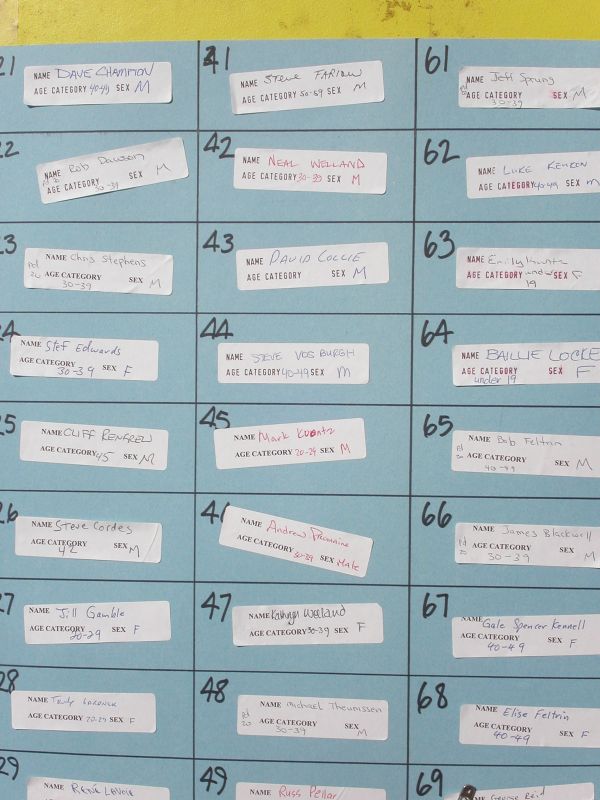 21
NAME DAVE CHAMPION
AGE CATEGORY 40-49 SEX M
41
NAME Steve FARLOW
AGE CATEGORY 50-59 SEX M
61
NAME Jeff Sprung
AGE CATEGORY SEX M
30-39
22
NAME Rob Dawson
AGE CATEGORY SEX M
30-39
42
NAME NEAL WELLAND
AGE CATEGORY 30-39 SEX M
62
NAME LUKE
AGE CATEGORY 40-49 SEX M
23
NAME Chris Stephens
pd 20 AGE CATEGORY SEX M
30-39
43
NAME DAVID COLLIE
AGE CATEGORY SEX M
63
NAME Emily Kuntz
AGE CATEGORY under SEX F
19
24
NAME Stef Edwards
AGE CATEGORY SEX F
30-39
44
NAME STEVE VOSBURGH
AGE CATEGORY 40-49 SEX M
64
NAME BAILLIE LOCKE
AGE CATEGORY SEX F
under 19
25
NAME CLIFF RENFREW
AGE CATEGORY 45 SEX M
45
NAME Mark Kuontz
AGE CATEGORY 20-29 SEX M
65
NAME Bob Feltrin
pd 20 AGE CATEGORY SEX M
40-49
26
NAME Steve Cordes
AGE CATEGORY SEX M
42
46
NAME Andrew
AGE CATEGORY 30-39 SEX Male
66
NAME James Blackwell
pd 20 AGE CATEGORY SEX M
30-39
27
NAME Jill Gamble
AGE CATEGORY SEX F
20-29
47
NAME Kathryn Welland
AGE CATEGORY 30-39 SEX F
67
NAME Gale Spencer Kennell
AGE CATEGORY SEX F
40-49
28
NAME Trudy
AGE CATEGORY 20-29 SEX F
48
NAME Michael Theunissen
pd 20 AGE CATEGORY SEX M
30-39
68
NAME Elise Feltrin
AGE CATEGORY SEX F
40-49
29
NAME RENÉ LAVOIE
49
NAME Russ Pellar
69
NAME George Reid